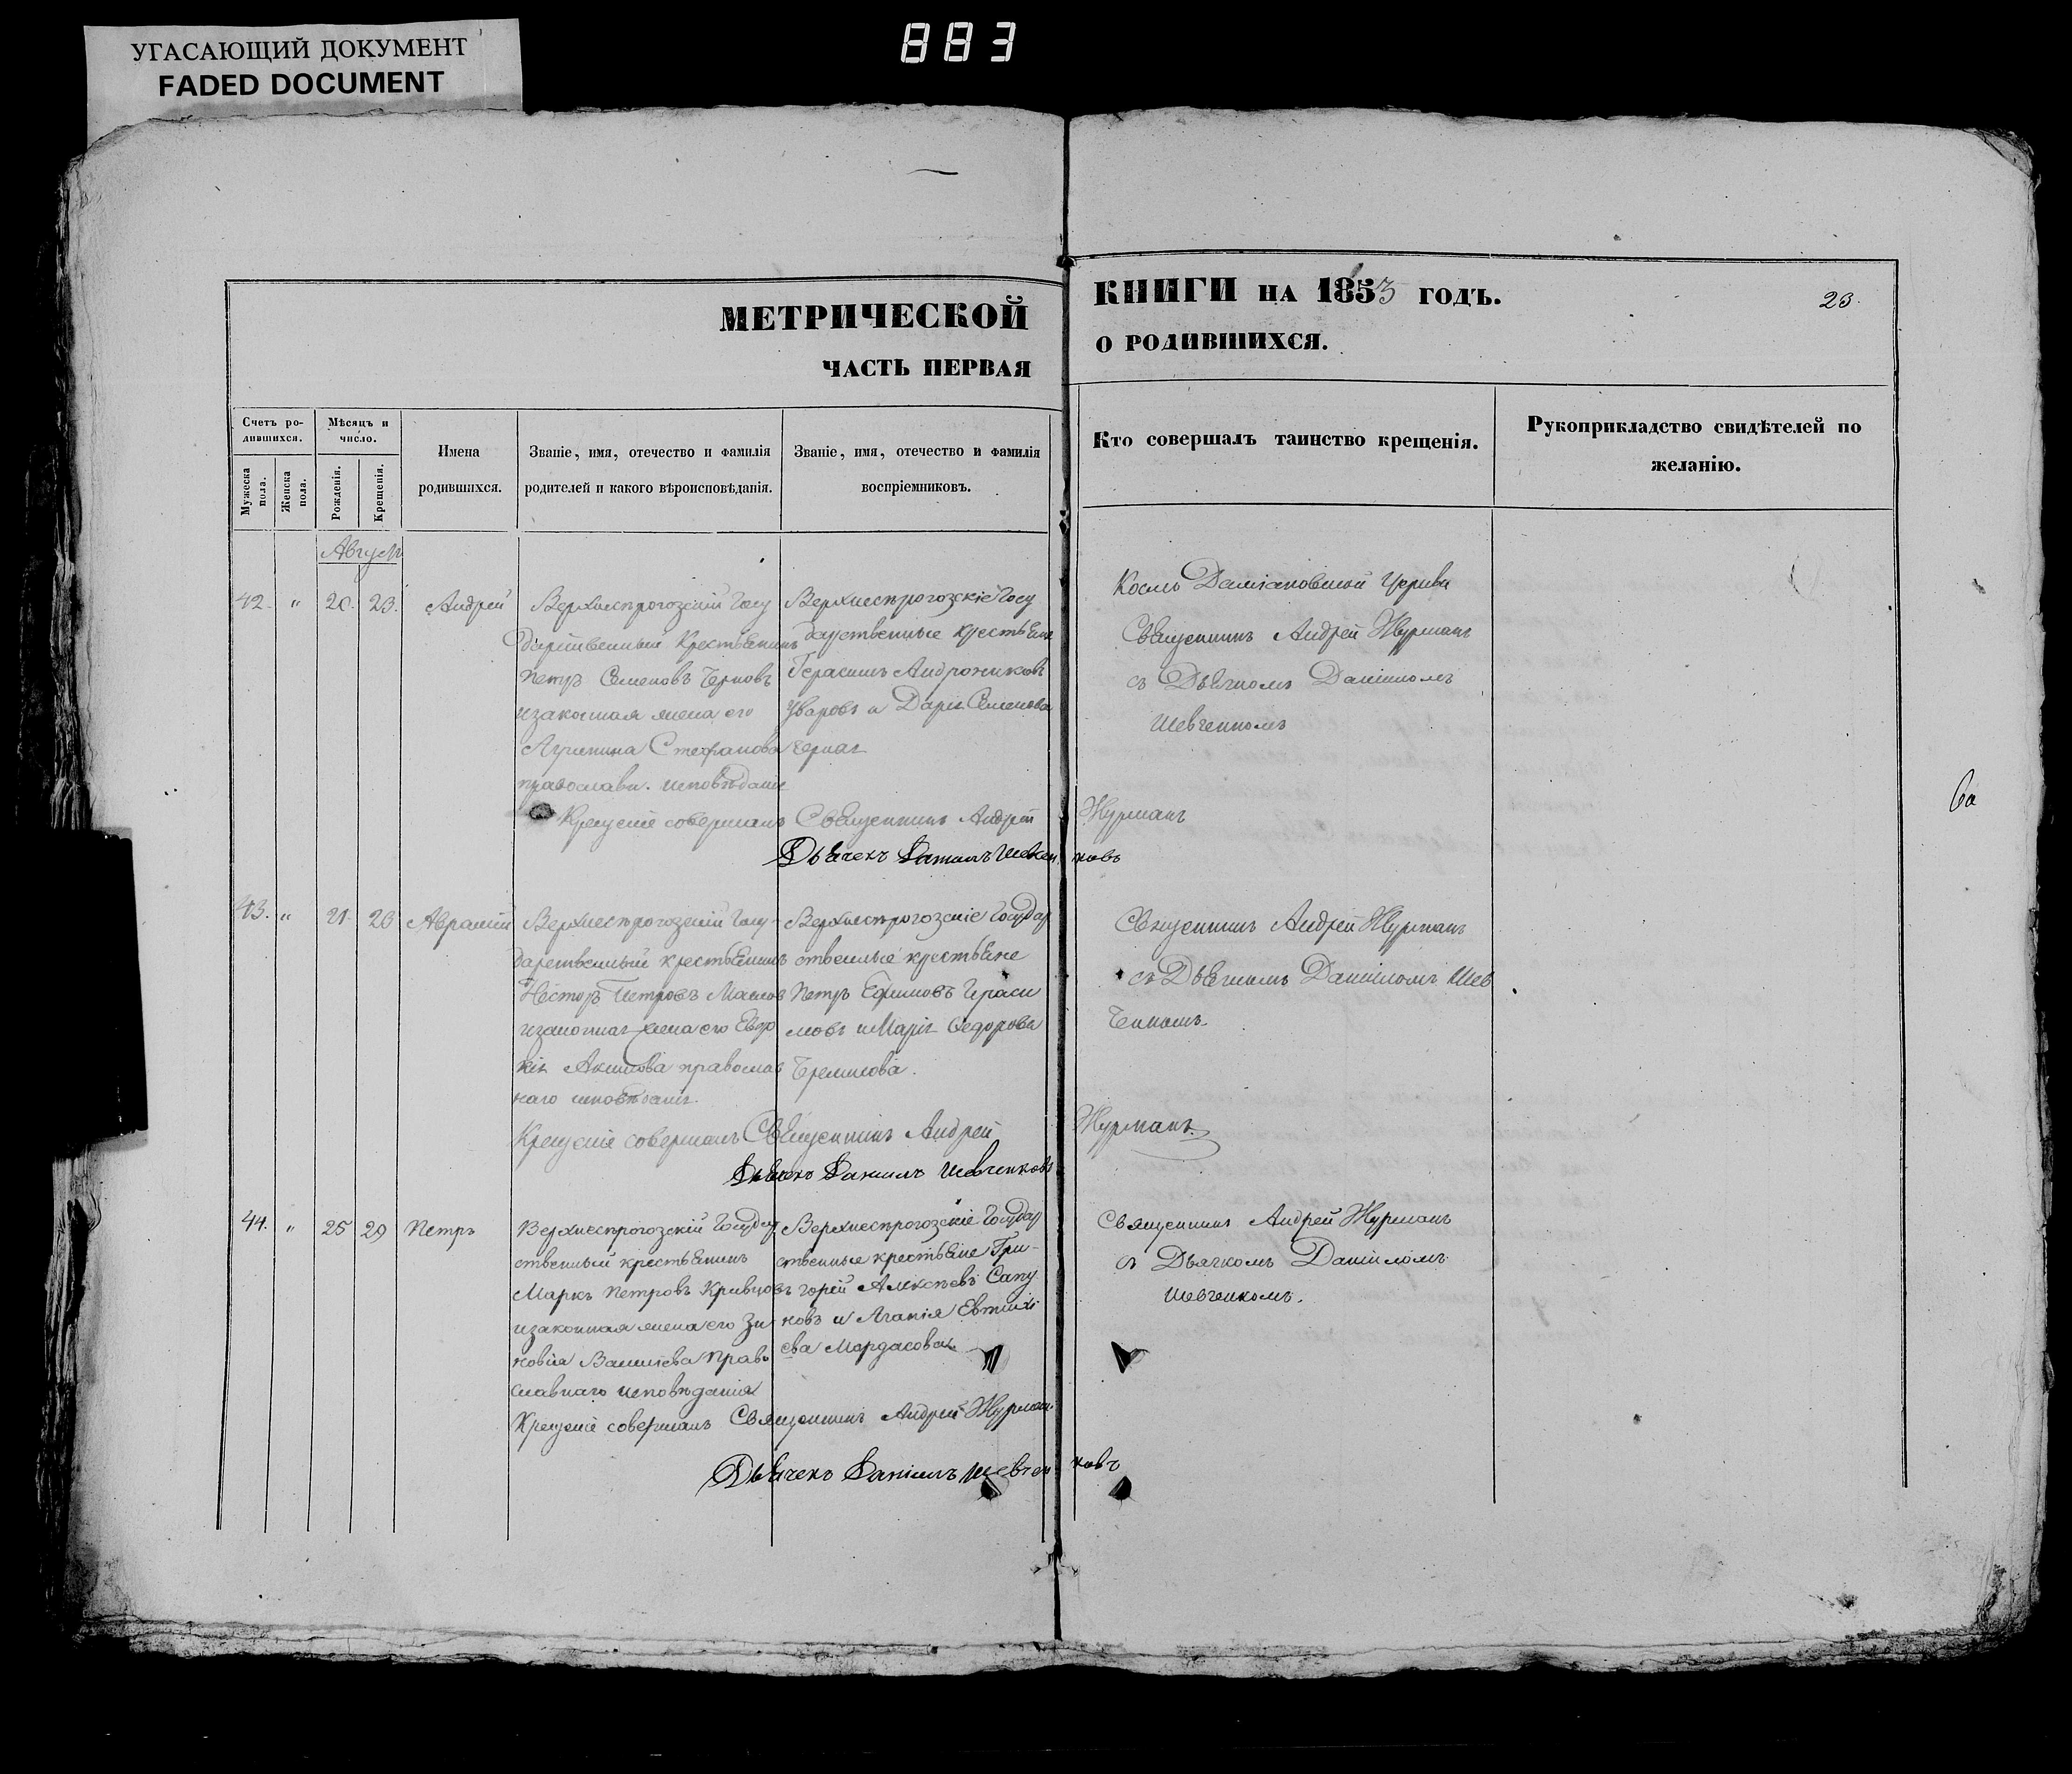 УГАСАЮЩИЙ ДОКУМЕНТ
FADED DOCUMENT
883
МЕТРИЧЕСКОЙ
ЧАСТЬ ПЕРВАЯ
КНИГИ НА 1853 ГОДЪ.
О РОДИВШИХСЯ.
23.
Счетъ ро-
дившихся.
Мужеска пола.
Женска пола.
Мѣсяцъ и
число.
Рожденія.
Крещенія.
Имена
родившихся.
Званіе, имя, отечество и фамилія
родителей и какого вѣроисповѣданія.
Званіе, имя, отечество и фамилія
воспріемниковъ.
Кто совершалъ таинство крещенія.
Рукоприкладство свидѣтелей по
желанію.
Август
42. " 20. 23. Андрей
Верхнерогозскій Госу
дарственный Крестьянинъ
Петръ Семеновъ Черновъ
изаконная жена его
Агрипина Стефанова
православн. исповѣданія
Верхнерогозскіе Госу
дарственные крестьяне
Герасимъ Андрониковъ
Уваровъ и Дарія Семенова
Черная
Космо Даміановской Церкви
Священникъ Андрей Журманъ
съ Дьячкомъ Даніиломъ
Шевченкомъ
Крещеніе совершалъ Священникъ Андрей Журманъ
Дьячекъ Данiилъ Шевчен ковъ
43. " 21 23 Аврамій
Верхнерогозскій Госу-
дарственный крестьянинъ
Несторъ Петровъ
изаконная жена его Евдо
кія Акимова православ
наго исповѣданія.
Верхнерогозскіе Государ
ственные крестьяне
Петръ Ефимовъ Гераси
мовъ и Марія Федорова
Священникъ Андрей Журманъ
съ Дьячкомъ Даніиломъ Шев
ченкомъ.
Крещеніе совершалъ Священникъ Андрей Журманъ
Дьячекъ Даніилъ Шевченковъ
44. " 25 29 Петръ
Верхнерогозскій Государ
ственный крестьянинъ
Маркъ Петровъ Кривцовъ
изаконная жена его Зи
новія Васильева Право
славнаго исповѣданія
Верхнерогозскіе Государ
ственные крестьяне Гри-
горій Алексѣевъ Сапу
новъ и Агапія Евтихі
ева Мордасова
Священникъ Андрей Журманъ
съ Дьячкомъ Даніиломъ
Шевченкомъ.
Крещеніе совершалъ Священникъ Андрей Журманъ
Дьячекъ Даніилъ Шевчен ковъ